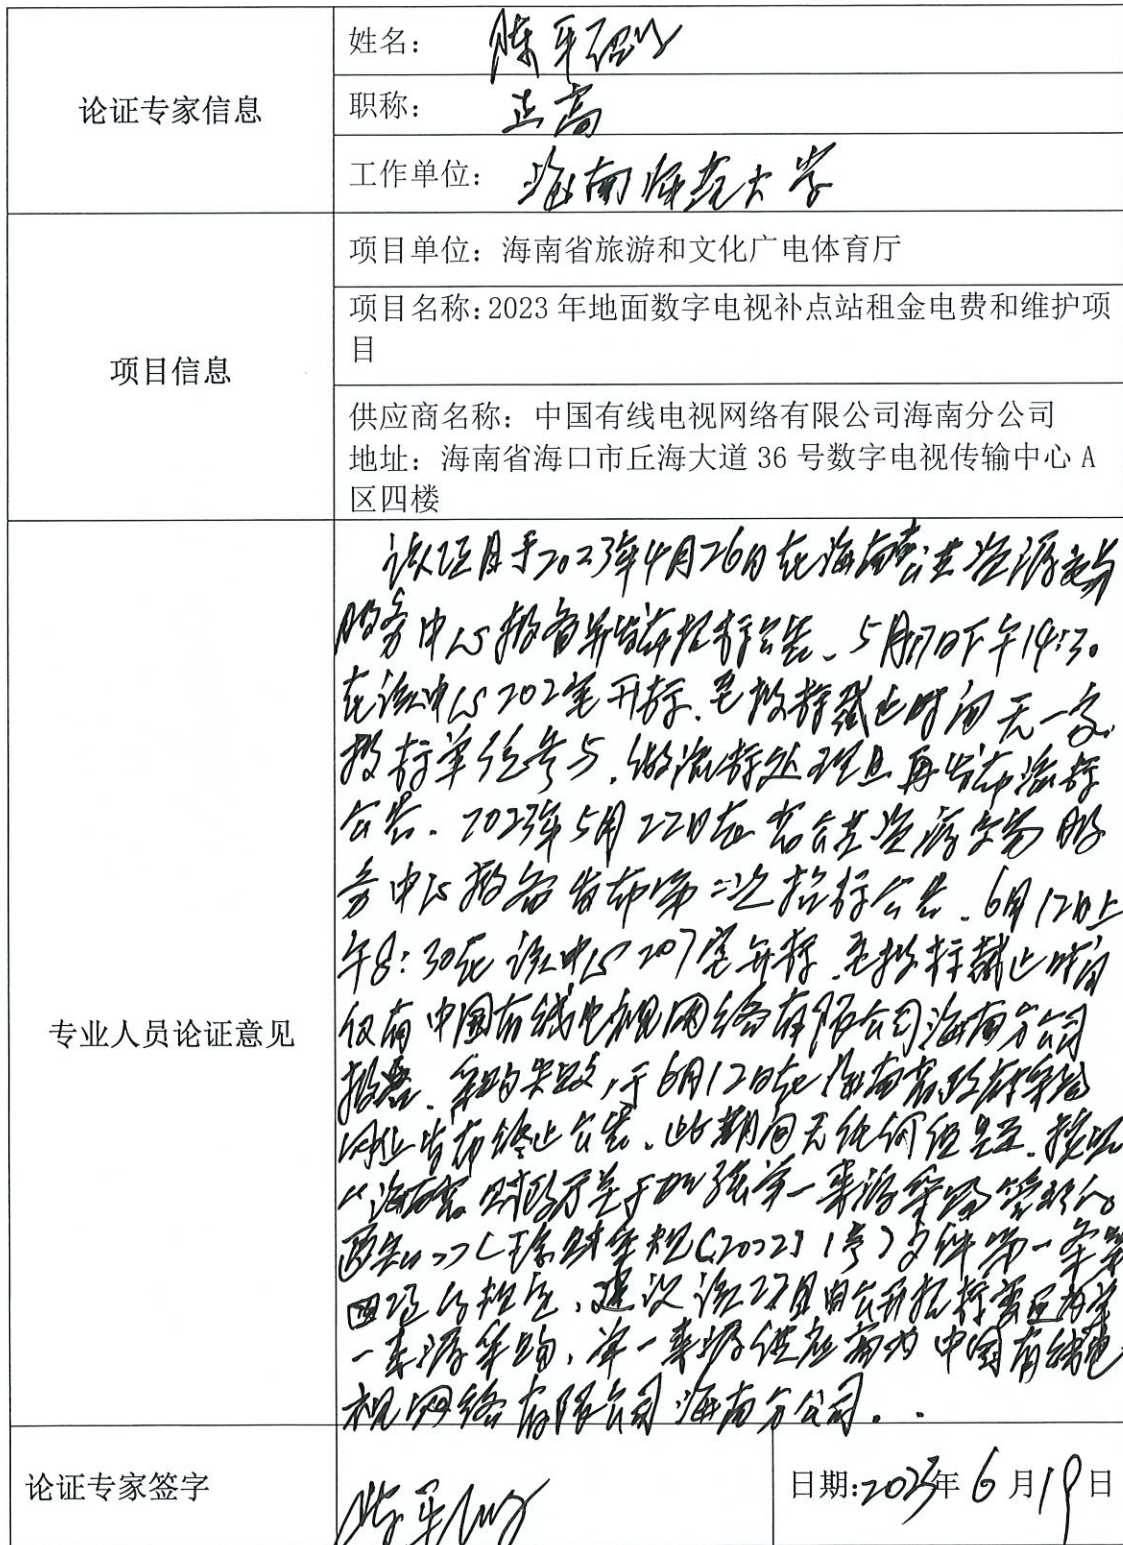 论证专家信息
姓名：陈平
职称：正高
工作单位：海南师范大学
项目信息
项目单位：海南省旅游和文化广电体育厅
项目名称:2023 年地面数字电视补点站租金电费和维护项
目
供应商名称：中国有线电视网络有限公司海南分公司
地址：海南省海口市丘海大道 36 号数字电视传输中心 A
区四楼
专业人员论证意见
该项目于2023年4月26日在海南省公共资源交易
服务中心报备并发布招标公告、5月17日下午14:30
在该中心202室开标、至投标截止时间无一家
投标单位参与，做流标处理且再发布流标
公告。2023年5月22日在省公共资源交易服
务中心报备发布第二次招标公告、6月12日上
午8:30在该中心207室开标、至投标截止时间
仅有中国有线电视网络有限公司海南分公司
采购失败，于6月12日在海南省政府采购
网上发布终止公告、此期间无任何质疑、按照
《海南省财政厅关于加强单一来源采购管理的
通知》（琼财采规〔2022〕1号）文件第一条第
四项的规定，建议该项目由公开招标变更为单
一来源采购，单一来源供应商为中国有线电
视网络有限公司海南分公司。
论证专家签字
陈平
日期:2023年6月19日